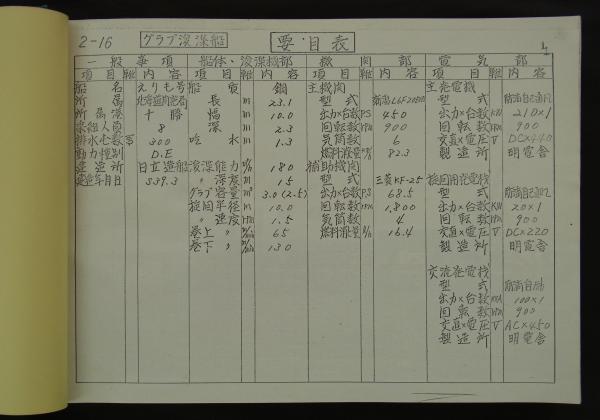 2-16 グラブ浚渫船 要目表
一般事項 船体、浚渫機部 機関部 電気部
項目 内容 項目 内容 項目 内容 項目 内容
船名 えりも号 船質 鋼 主機関 主発電機
所属 長 m 23.1 型式 型式
所属港 十勝 幅 m 10.0 出力×台数 PS 450 出力×台数 KW 210×1
乗組人員 8 深 m 2.3 回転数 900 回転数 900
排水屯数 300 吃水 m 1.3 気筒数 6 交直×電圧 V DC×440
動力種別 D.E 燃料消費量 82.3 製造所 明電舎
建造所 日立造船 浚渫能力 180 補助機関
建造年月日 S39.3 〃深度 m 15 型式 三菱KF-25 旋回用発電機
グラブ容量 m³ 3.0(2.5) 出力×台数 PS 68.5 型式
旋回半径 m 10.0 回転数 1,800 出力×台数 KW 20×1
〃速度 1.5 気筒数 4 回転数 900
巻上〃 65 燃料消費量 16.4 交直×電圧 V DC×220
巻下〃 130 製造所 明電舎
交流発電機
型式
出力×台数 KVA 100×1
回転数 900
交直×電圧 V AC×450
製造所 明電舎